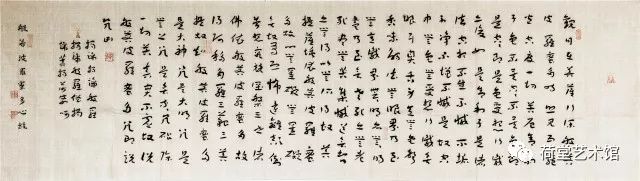 觀自在菩薩行深般若
波羅蜜多時照見五蘊
皆空度一切苦厄舍利
子色不異空空不異色
色即是空空即是色受想行識
亦復如是舍利子是諸
法空相不生不滅不垢
不淨不增不減是故空
中無色無受想行識無
眼耳鼻舌身意無色聲香
味觸法無眼界乃至
無意識界無無明亦
無無明盡乃至無老死亦無
老死盡無苦集滅道無智亦
無得以無所得故菩提
薩埵依般若波羅蜜
多故心無罣礙無罣礙
故無有恐怖遠離顛倒
夢想究竟涅槃三世諸
佛依般若波羅蜜多故
得阿耨多羅三藐三菩
提故知般若波羅蜜多
是大神咒是大明咒是
無上咒是無等等咒能除
一切苦真實不虛故說
般若波羅蜜多咒即說
咒曰
揭諦揭諦般羅
揭諦般羅僧揭
諦菩提薩婆訶
般若波羅蜜多心經
荷堂艺术馆